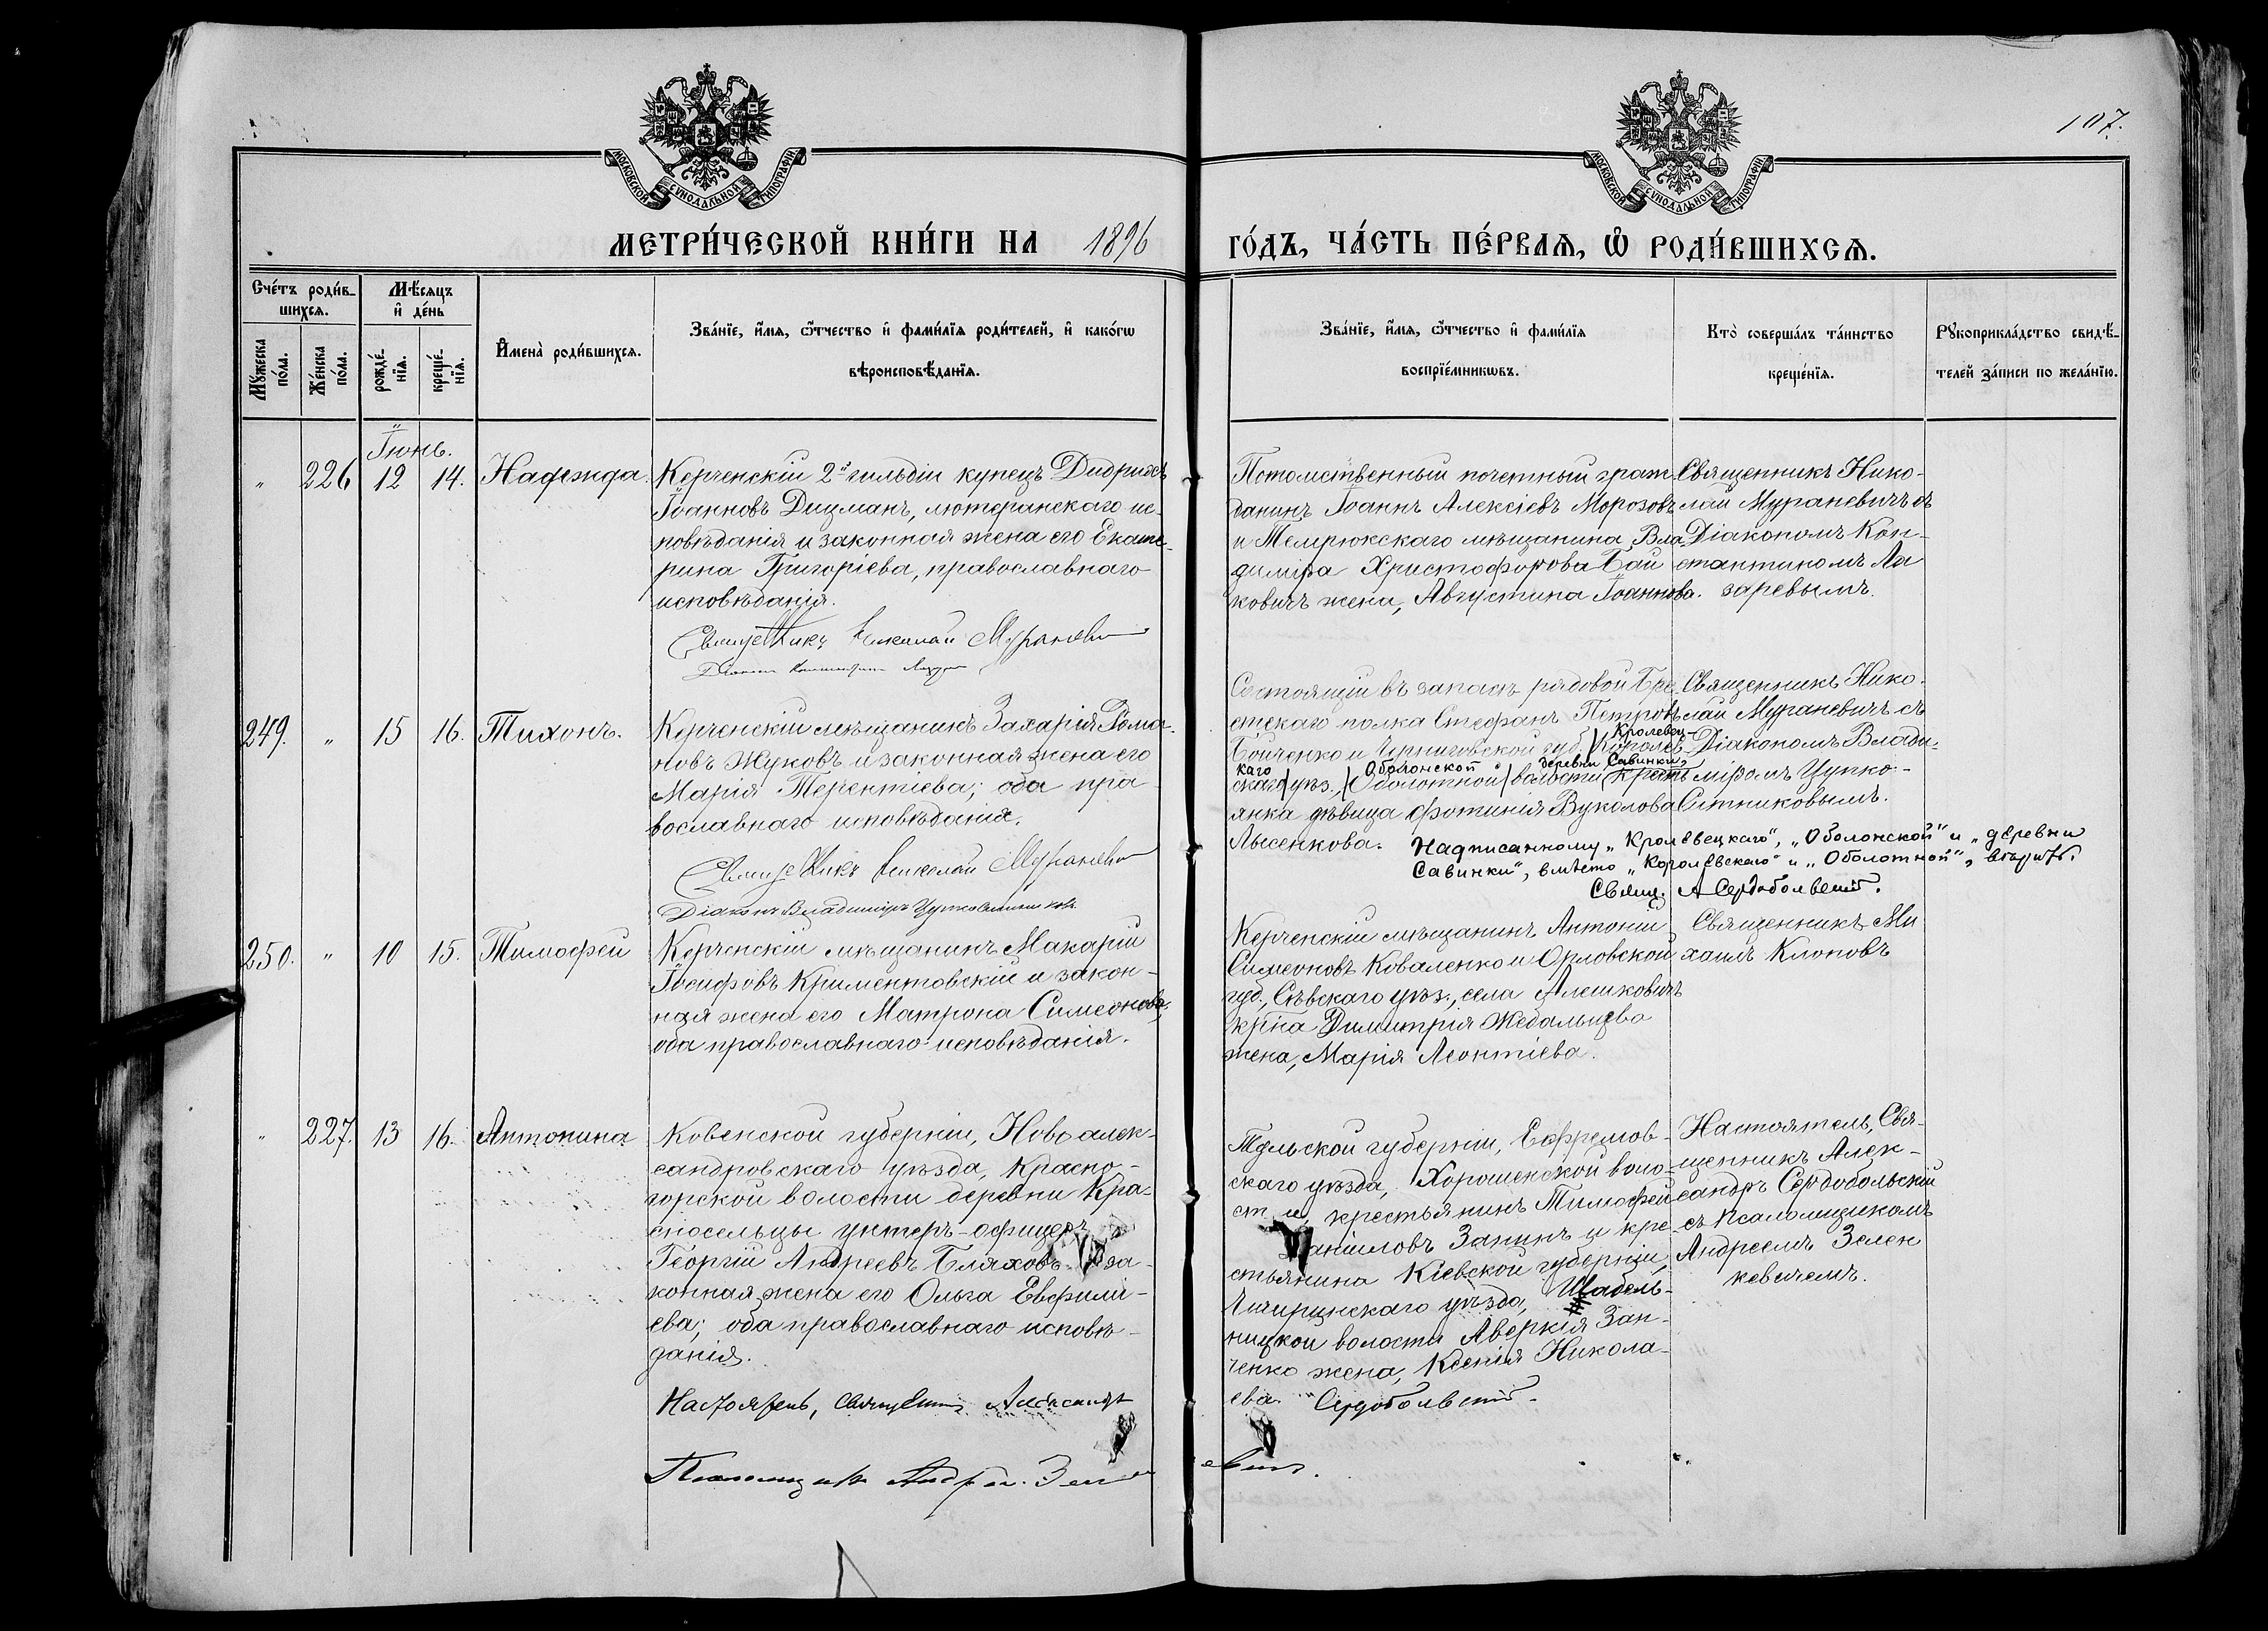 107.
МОСКОВСКОЙ СѴНОДАЛЬНОЙ ТИПОГРАФІИ
МОСКОВСКОЙ СѴНОДАЛЬНОЙ ТИПОГРАФІИ
МЕТРИ́ЧЕСКОЙ КНИ́ГИ НА 1896 ГО́ДЪ, ЧА́СТЬ ПЕ́РВАѦ, Ѡ҆ РОДИ́ВШИХСѦ.
Сче́тъ роди́в-
шихсѧ.
Мꙋ́жеска по́ла.
Же́нска по́ла.
Мѣ́сѧцъ
и҆ де́нь
рожде́-
нїѧ.
креще́-
нїѧ.
И҆мена̀ роди́вшихсѧ.
Зва́нїе, и҆́мѧ, ѻ҆́тчество и҆ фами́лїѧ роди́телей, и҆ како́гѡ
вѣроисповѣ́данїѧ.
Зва́нїе, и҆́мѧ, ѻ҆́тчество и҆ фами́лїѧ
воспрїе́мникѡвъ.
Кто̀ соверша́лъ та́инство
креще́нїѧ.
Рꙋкоприкла́дство свидѣ́-
телей за́писи по жела́нїю.
Іюнь.
" 226 12 14. Надежда.
Керченскій 2й гильдіи купецъ Дидрихъ
Іоанновъ Дицманъ, лютеранскаго ис-
повѣданія и законная жена его Екате-
рина Григоріева, православнаго
исповѣданія.
Священникъ Николай Мураневичъ
Діаконъ Константинъ Лазаревъ
Потомственный почетный граж-
данинъ Іоаннъ Алексіевъ Морозовъ
и Темрюкскаго мѣщанина Вла-
диміра Христофорова Бай
ковичъ жена, Августина Іоаннова.
Священникъ Нико-
лай Мураневичъ съ
Діакономъ Кон-
стантиномъ Ла
заревымъ.
249. " 15 16. Тихонъ.
Керченскій мѣщанинъ Захарія Рома-
новъ Жуковъ и законная жена его
Марія Терентіева; оба пра-
вославнаго исповѣданія.
Священникъ Николай Мураневичъ
Діаконъ Владиміръ Цупко-Ситниковъ
Состоящій въ запасѣ рядовой Бре
стскаго полка Стефанъ Петровъ
Кролевец-
Бойченко и Черниговской губ. (Королев
каго Оболонской деревни Савинки,
скаго) уѣз., (Оболотной) волости кресть
янка дѣвица Фотинія Вуколова
Лысенкова.
Священникъ Нико-
лай Мураневичъ съ
Діакономъ Влади-
міромъ Цупко-
Ситниковымъ.
Надписанному „Кролевецкаго", „Оболонской" и „деревни
Савинки", вмѣсто „Королевскаго" и „Оболотной", вѣрить.
Свящ. А Сердобольскій.
250. " 10 15. Тимофей
Керченскій мѣщанинъ Макарій
Іосифовъ Криментовскій и закон-
ная жена его Матрона Симеонова,
оба православнаго исповѣданія.
Керченскій мѣщанинъ Антоній
Симеоновъ Коваленко и Орловской
губ., Сѣвскаго уѣз., села Алешковичъ
кр-на Димитрія Жедальцева
жена, Марія Леонтіева.
Священникъ Ми
хаилъ Клоповъ
" 227. 13 16. Антонина
Ковенской губерніи, Новоалек-
сандровскаго уѣзда, Красно-
горской волости деревни Кра-
сносельцы унтеръ-офицеръ
Георгій Андреевъ Бляховъ и за-
конная жена его Ольга Евфимі-
ева; оба православнаго исповѣ-
данія.
Настоятель, Священникъ Александръ Сердобольскій.
Псаломщикъ Андрей Зеленкевичъ.
Тульской губерніи, Ефремов-
скаго уѣзда, Хорошенской воло-
сти, крестьянинъ Тимофей
Даніиловъ Занинъ и кре-
стьянина Кіевской губерніи,
Чигиринскаго уѣзда, Шабель-
ницкой волости Аверкія Зан-
ченко жена, Ксенія Никола-
ева.
Настоятель, Свя-
щенникъ Алек-
сандръ Сердобольскій
съ псаломщикомъ
Андреемъ Зелен
кевичемъ.